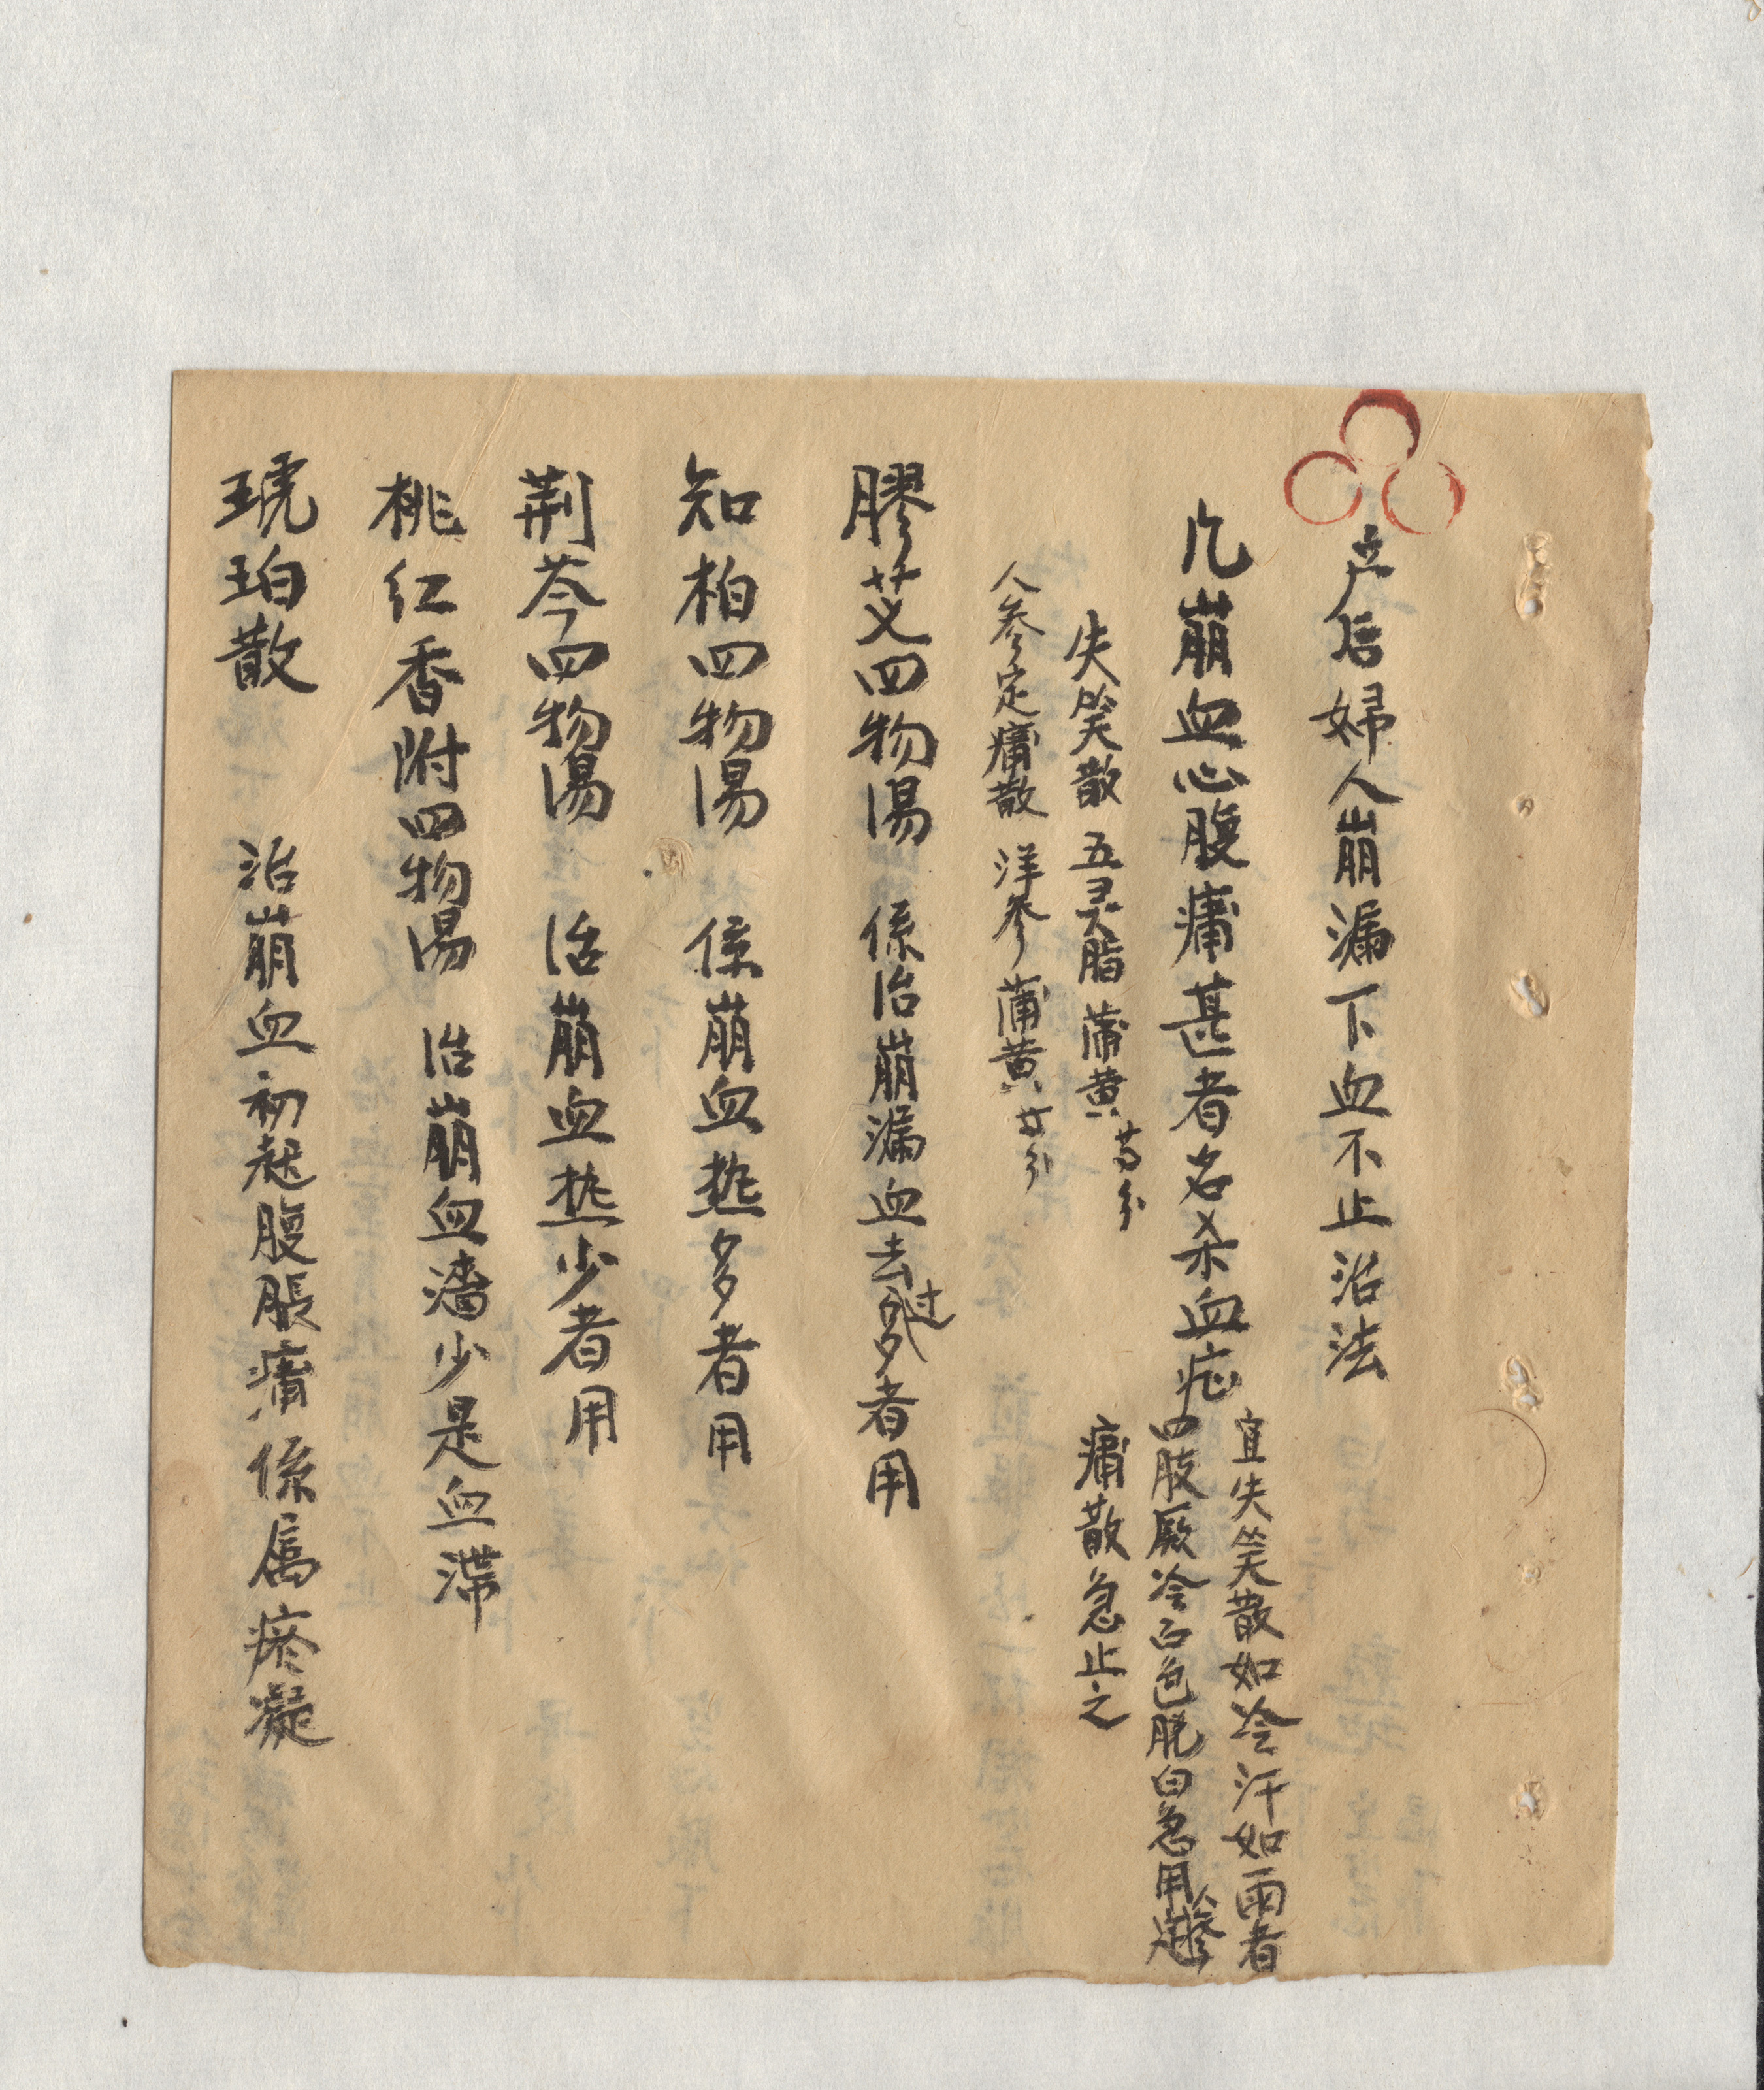 产后婦人崩漏下血不止治法
凢崩血心腹痛甚者名杀血症
宜失笑散如冷汗如雨者
四肢厥冷面色胱白急用人参定
痛散急止之
失笑散 五灵脂 蒲黄 等分
人参定痛散 洋参 蒲黄 廿分
膠艾四物湯 係治崩漏血去过多者用
知柏四物湯 係崩血热多者用
荆芩四物湯 治崩血热少者用
桃红香附四物湯 治崩血濇少是血滞
琥珀散 治崩血初起腹脹痛係屬瘀凝